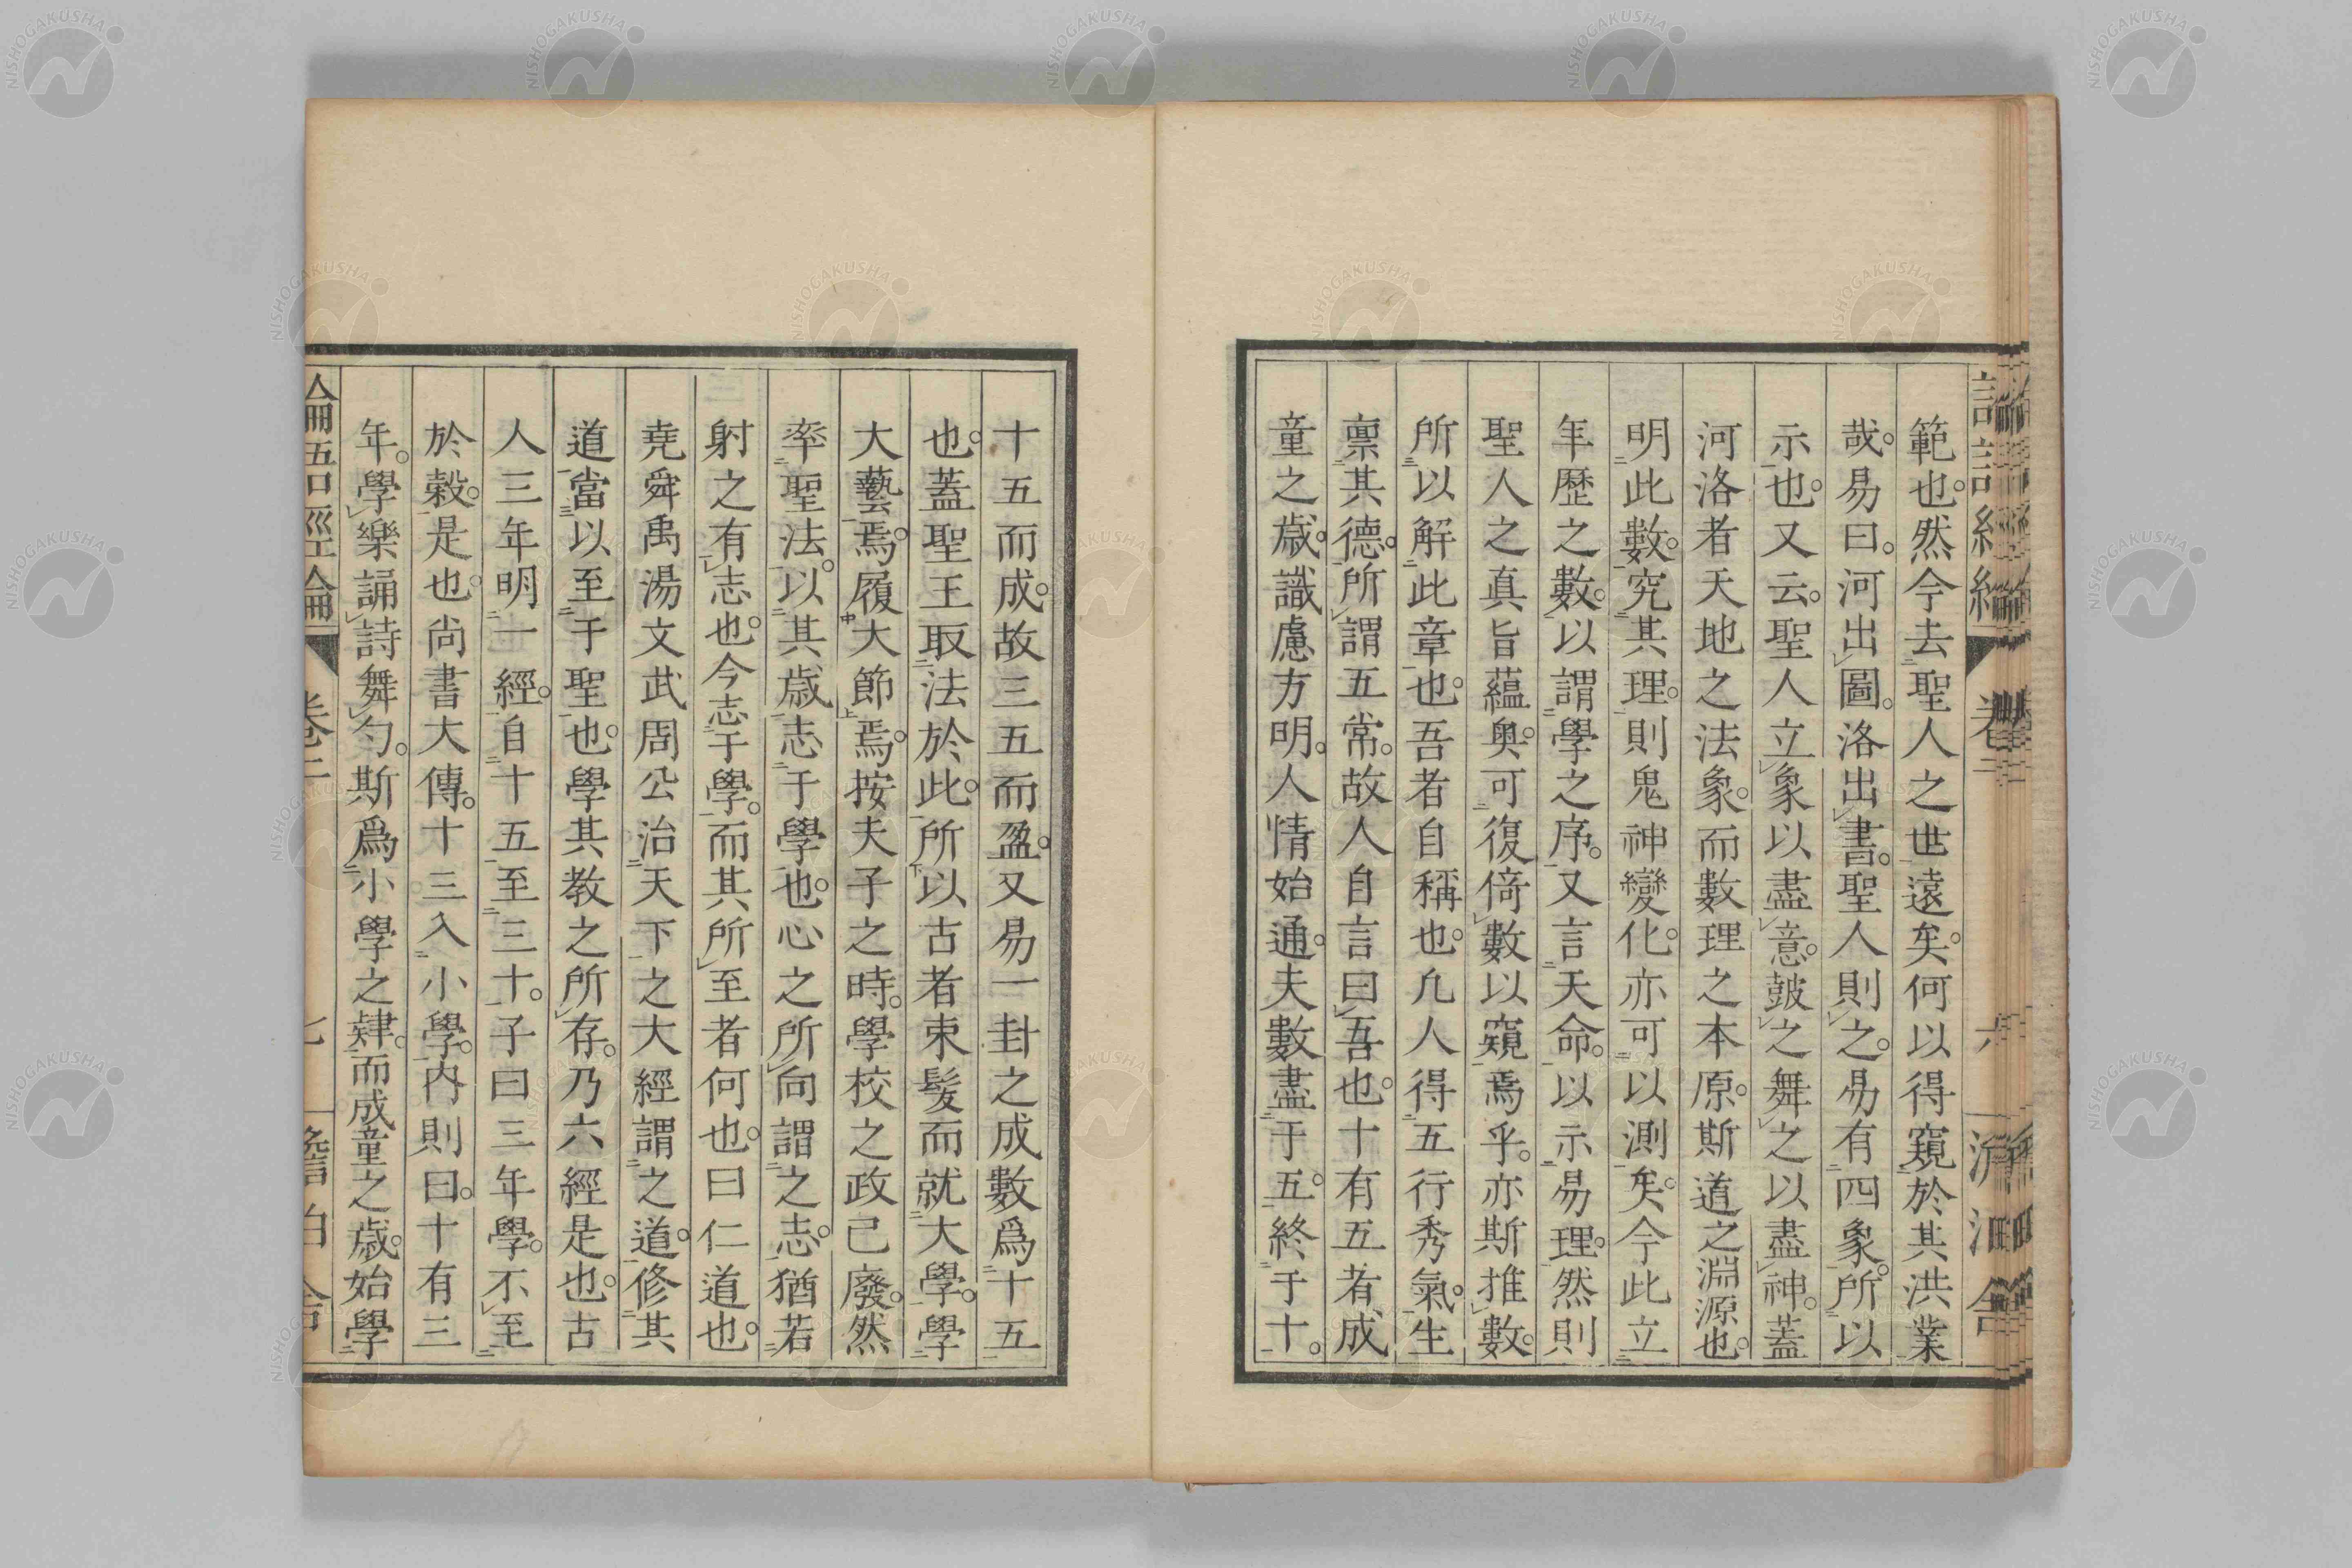 範也。然今去聖人之世遠矣。何以得窺於其洪業
哉。易曰。河出圖。洛出書。聖人則之。易有四象。所以
示也。又云。聖人立象以盡意。皷之舞之以盡神。蓋
河洛者天地之法象。而數理之本原。斯道之淵源也。
明此數。究其理。則鬼神變化。亦可以測矣。今此立
年歷之數。以謂學之序。又言天命。以示易理。然則
聖人之真旨蘊奥。可復倚數以窺焉乎。亦斯推數。
所以解此章也。吾者自稱也。凡人得五行秀氣。生
禀其德。所謂五常。故人自言曰吾也。十有五者成
童之歳。識慮方明。人情始通。夫數盡于五。終于十。
十五而成。故三五而盈。又易一卦之成數爲十五
也。蓋聖王取法於此。所以古者束髮而就大學。學
大藝焉。履大節焉。按夫子之時。學校之政已廢。然
率聖法。以其歳志于學也。心之所向謂之志。猶若
射之有志也。今志于學。而其所至者何也。曰仁道也。
堯舜禹湯文武周公治天下之大經謂之道。修其
道當以至于聖也。學其教之所存。乃六經是也。古
人三年明一經。自十五至三十。子曰三年學。不至
於穀。是也。尚書大傳。十三入小學。内則曰。十有三
年。學樂誦詩舞勺。斯爲小學之肄。而成童之歳。始學
論語經論 卷二 七